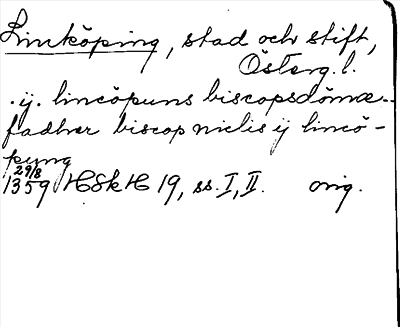 Linköping, stad och stift,
Österg. l.
.ij. lincöpuns biscopsdömæ-
fadher biscop niclis ij lincö-
pung
29/8
1359 HSkH 19, ss. I, II. orig.